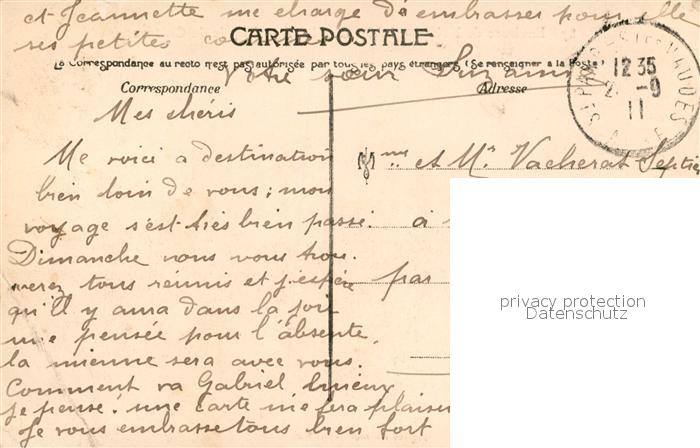 et Jeannette me charge d'embrasser pour elle
ses petites
CARTE POSTALE
La Correspondance au recto n'est pas autorisée par tous les pays étrangers (Se renseigner à la Poste)
Votre sœur Suzanne
Correspondance
Adresse
12 35
2 -9
11
Mes chéris
Me voici a destination
bien loin de vous; mon
voyage s'est très bien passé.
Dimanche vous vous trou-
verez tous réunis et j'espère
qu'il y aura dans la joie
une pensée pour l'absente,
la mienne sera avec vous.
Comment va Gabriel mieux
je pense! une carte me fera plaisir
Je vous embrasse tous bien fort
Mme et Mr Vacherat
à
par
privacy protection
Datenschutz